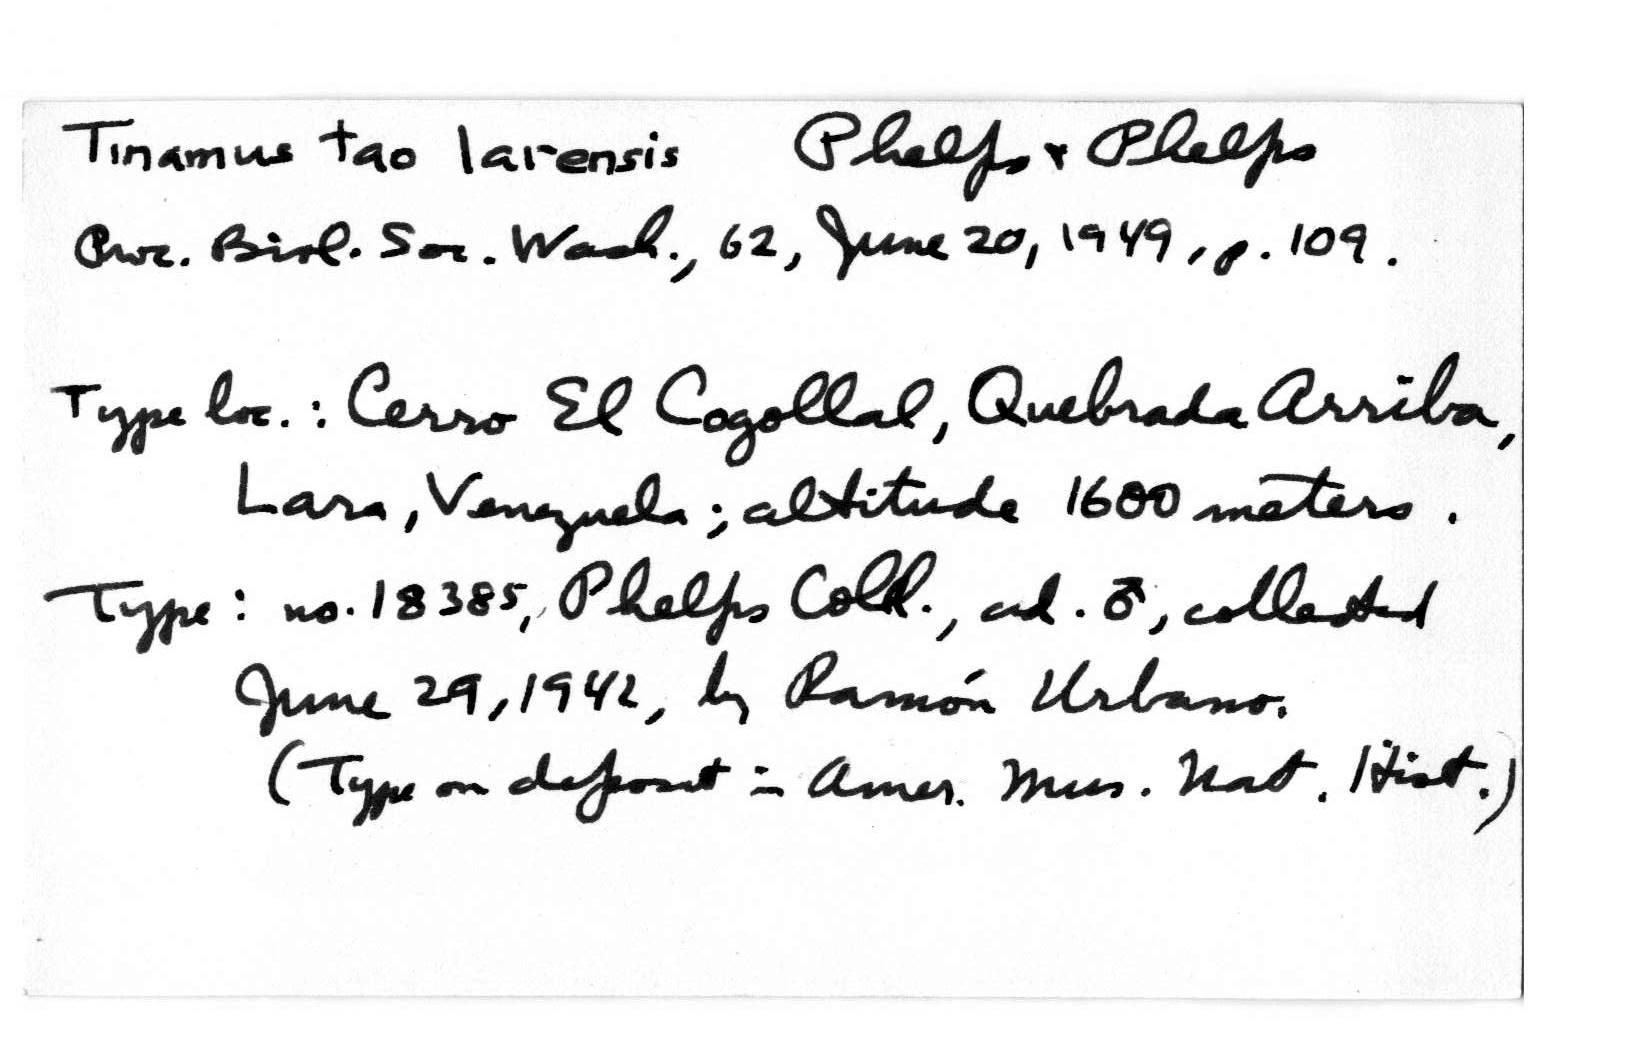 Tinamus tao larensis Phelps & Phelps
Proc. Biol. Soc. Wash., 62, June 20, 1949, p. 109.
Type loc.: Cerro El Cogollal, Quebrada Arriba,
Lara, Venezuela; altitude 1600 meters.
Type: no. 18385, Phelps Coll., ad. ♂, collected
June 29, 1942, by Ramón Urbano.
(Type on deposit in Amer. Mus. Nat. Hist.)